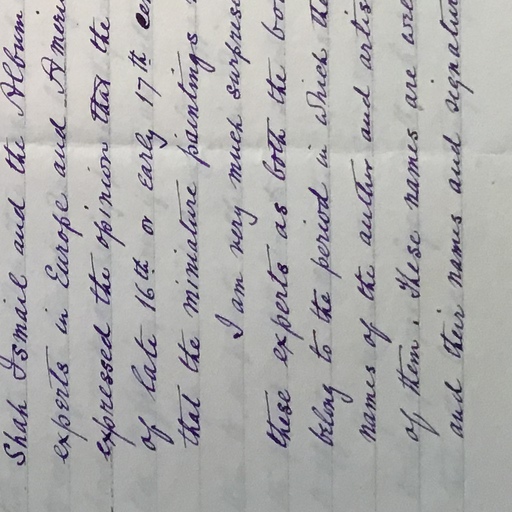 Shah Ismail and the Album
experts in Europe and Ameri
expressed the opinion that the
of late 16th or early 17th ce
that the miniature paintings
I am very much surpris
these experts as both the bo
belong to the period in which the
names of the author and artis
of them. These names are wre
and their names and signatur